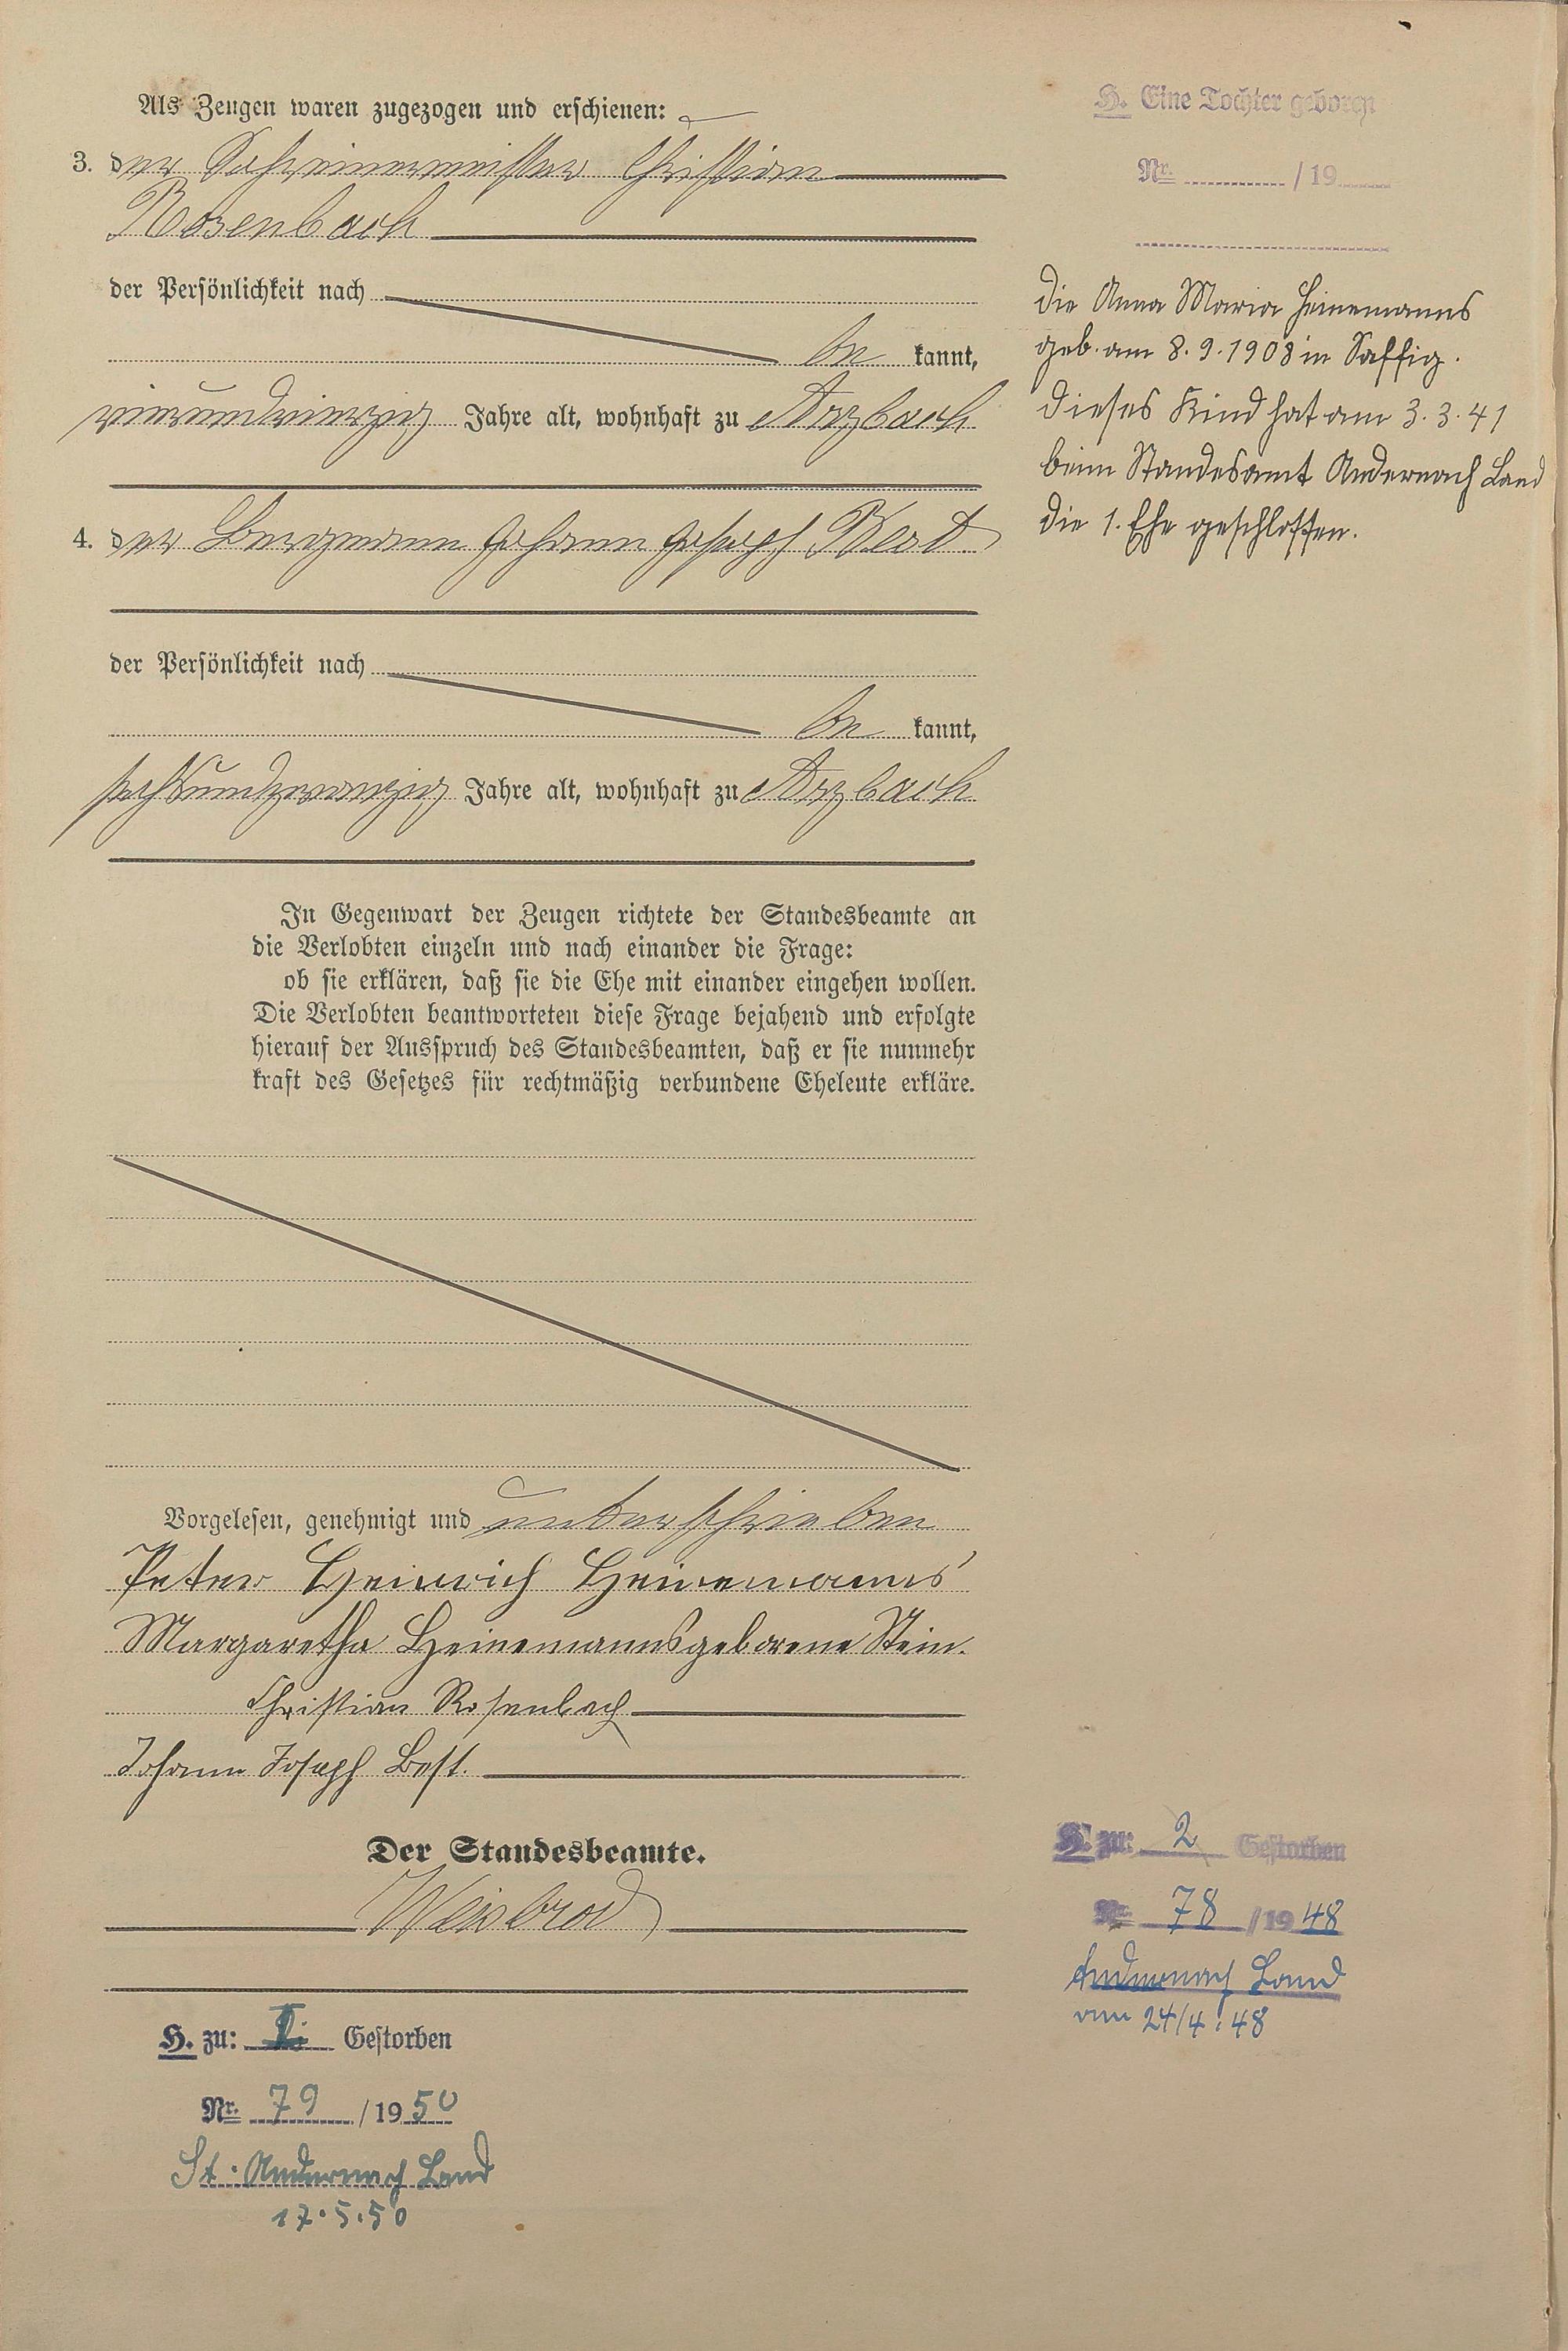 Als Zeugen waren zugezogen und erschienen:
3. der Schreinermeister Christian
Rosenbach
der Persönlichkeit nach
be kannt,
vierundvierzig Jahre alt, wohnhaft zu Arzbach
4. der Bergmann Johann Joseph Best
der Persönlichkeit nach
be kannt,
sechsundzwanzig Jahre alt, wohnhaft zu Arzbach
In Gegenwart der Zeugen richtete der Standesbeamte an
die Verlobten einzeln und nach einander die Frage:
ob sie erklären, daß sie die Ehe mit einander eingehen wollen.
Die Verlobten beantworteten diese Frage bejahend und erfolgte
hierauf der Ausspruch des Standesbeamten, daß er sie nunmehr
kraft des Gesetzes für rechtmäßig verbundene Eheleute erkläre.
Vorgelesen, genehmigt und unterschrieben
Peter Heinrich Heinemanns
Margaretha Heinemanns geborene Stein.
Christian Rosenbach
Johann Joseph Best.
Der Standesbeamte.
Weisbrod
H. zu: Gestorben
Nr. 79 / 1950
St. Andernach Land
17.5.50
H. Eine Tochter geboren
Nr. / 19
die Anna Maria Heinemanns
geb. am 8.9.1908 in Saffig.
dieses Kind hat am 3.3.41
beim Standesamt Andernach Land
die 1. Ehe geschlossen.
H. zu: 2 Gestorben
Nr. 78 / 1948
Andernach Land
am 24/4.48